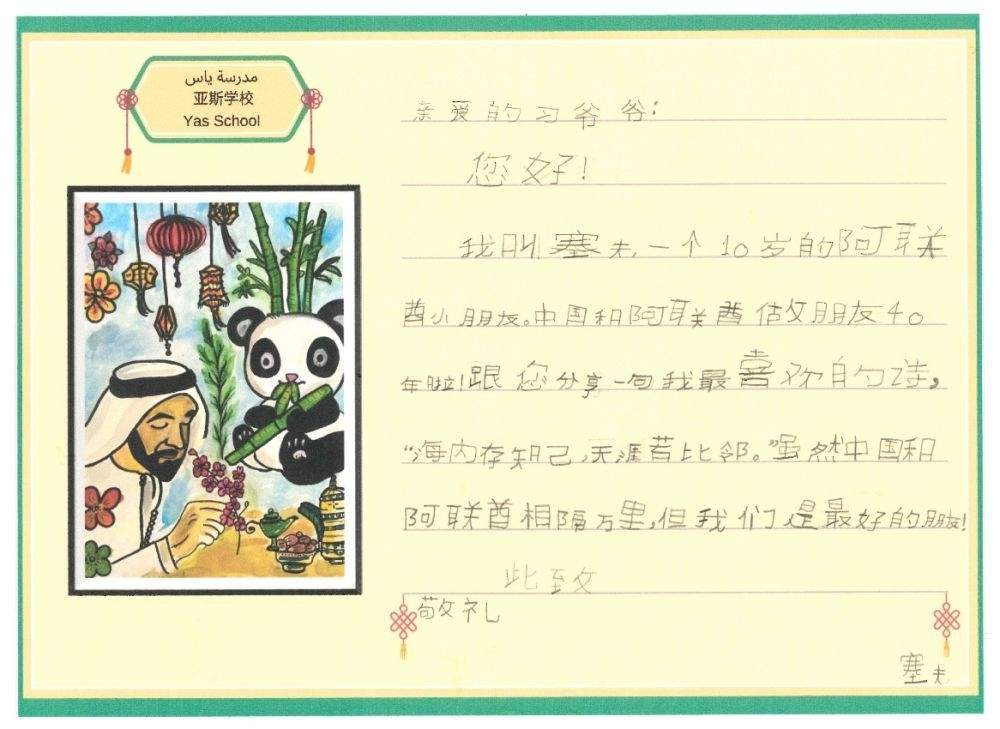 مدرسة ياس
亚斯学校
Yas School
亲爱的习爷爷:
您好!
我叫塞夫,一个10岁的阿联
酋小朋友。中国和阿联酋做朋友40
年啦!跟您分享一句我最喜欢的诗,
“海内存知己,天涯若比邻。”虽然中国和
阿联酋相隔万里,但我们是最好的朋友!
此致
敬礼
塞夫